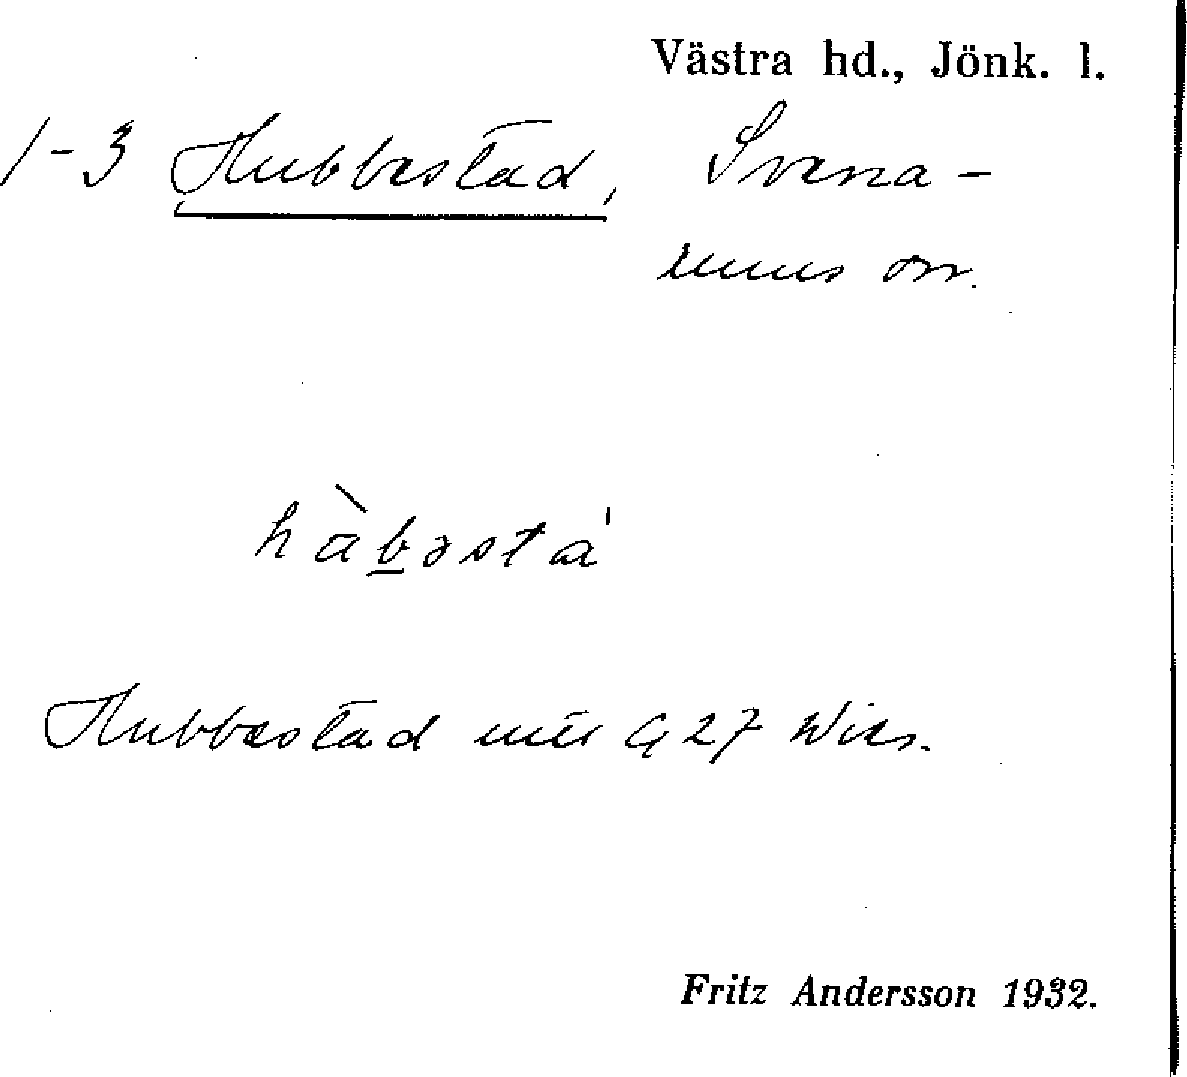 Västra hd., Jönk. l.
1-3 Hubbestad, Svena-
rums sn.
hàbəsta'
Hubbestad G 27 Wies.
Fritz Andersson 1932.